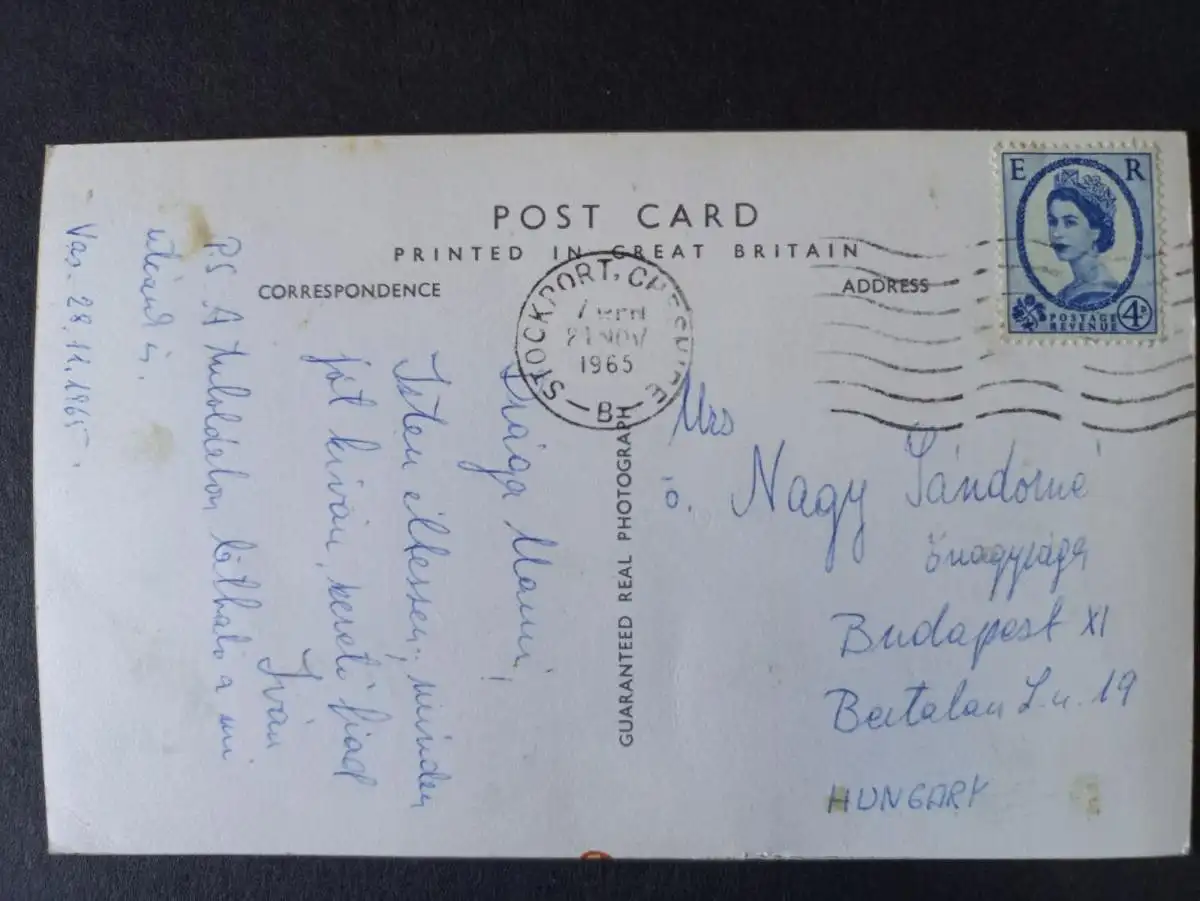 POST CARD
PRINTED IN GREAT BRITAIN
CORRESPONDENCE
ADDRESS
E R
POSTAGE
REVENUE
4D
STOCKPORT, CHESHIRE
NOV
1965
B
GUARANTEED REAL PHOTOGRAPH
Drága Mami,
Isten éltessen, minden
jót kíván, szerető fiad
Iván
P.S. A túloldalon látható a mi
utcánk is.
Vas. 28.11.1965.
Mrs
ö. Nagy Sándorné
őnagysága
Budapest XI
Bertalan L. u. 19
HUNGARY